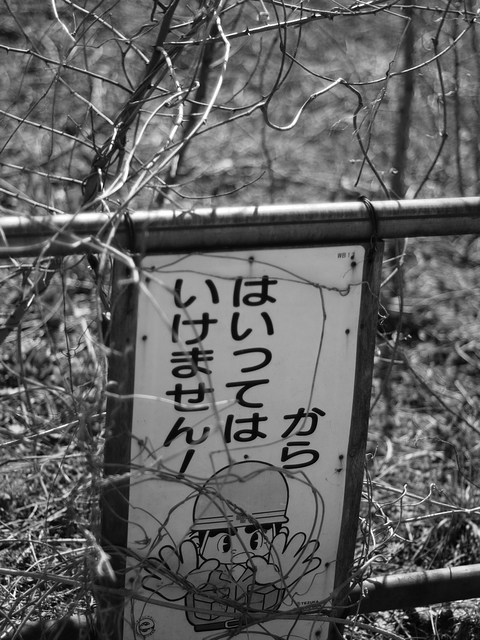 から
はいっては
いけません!